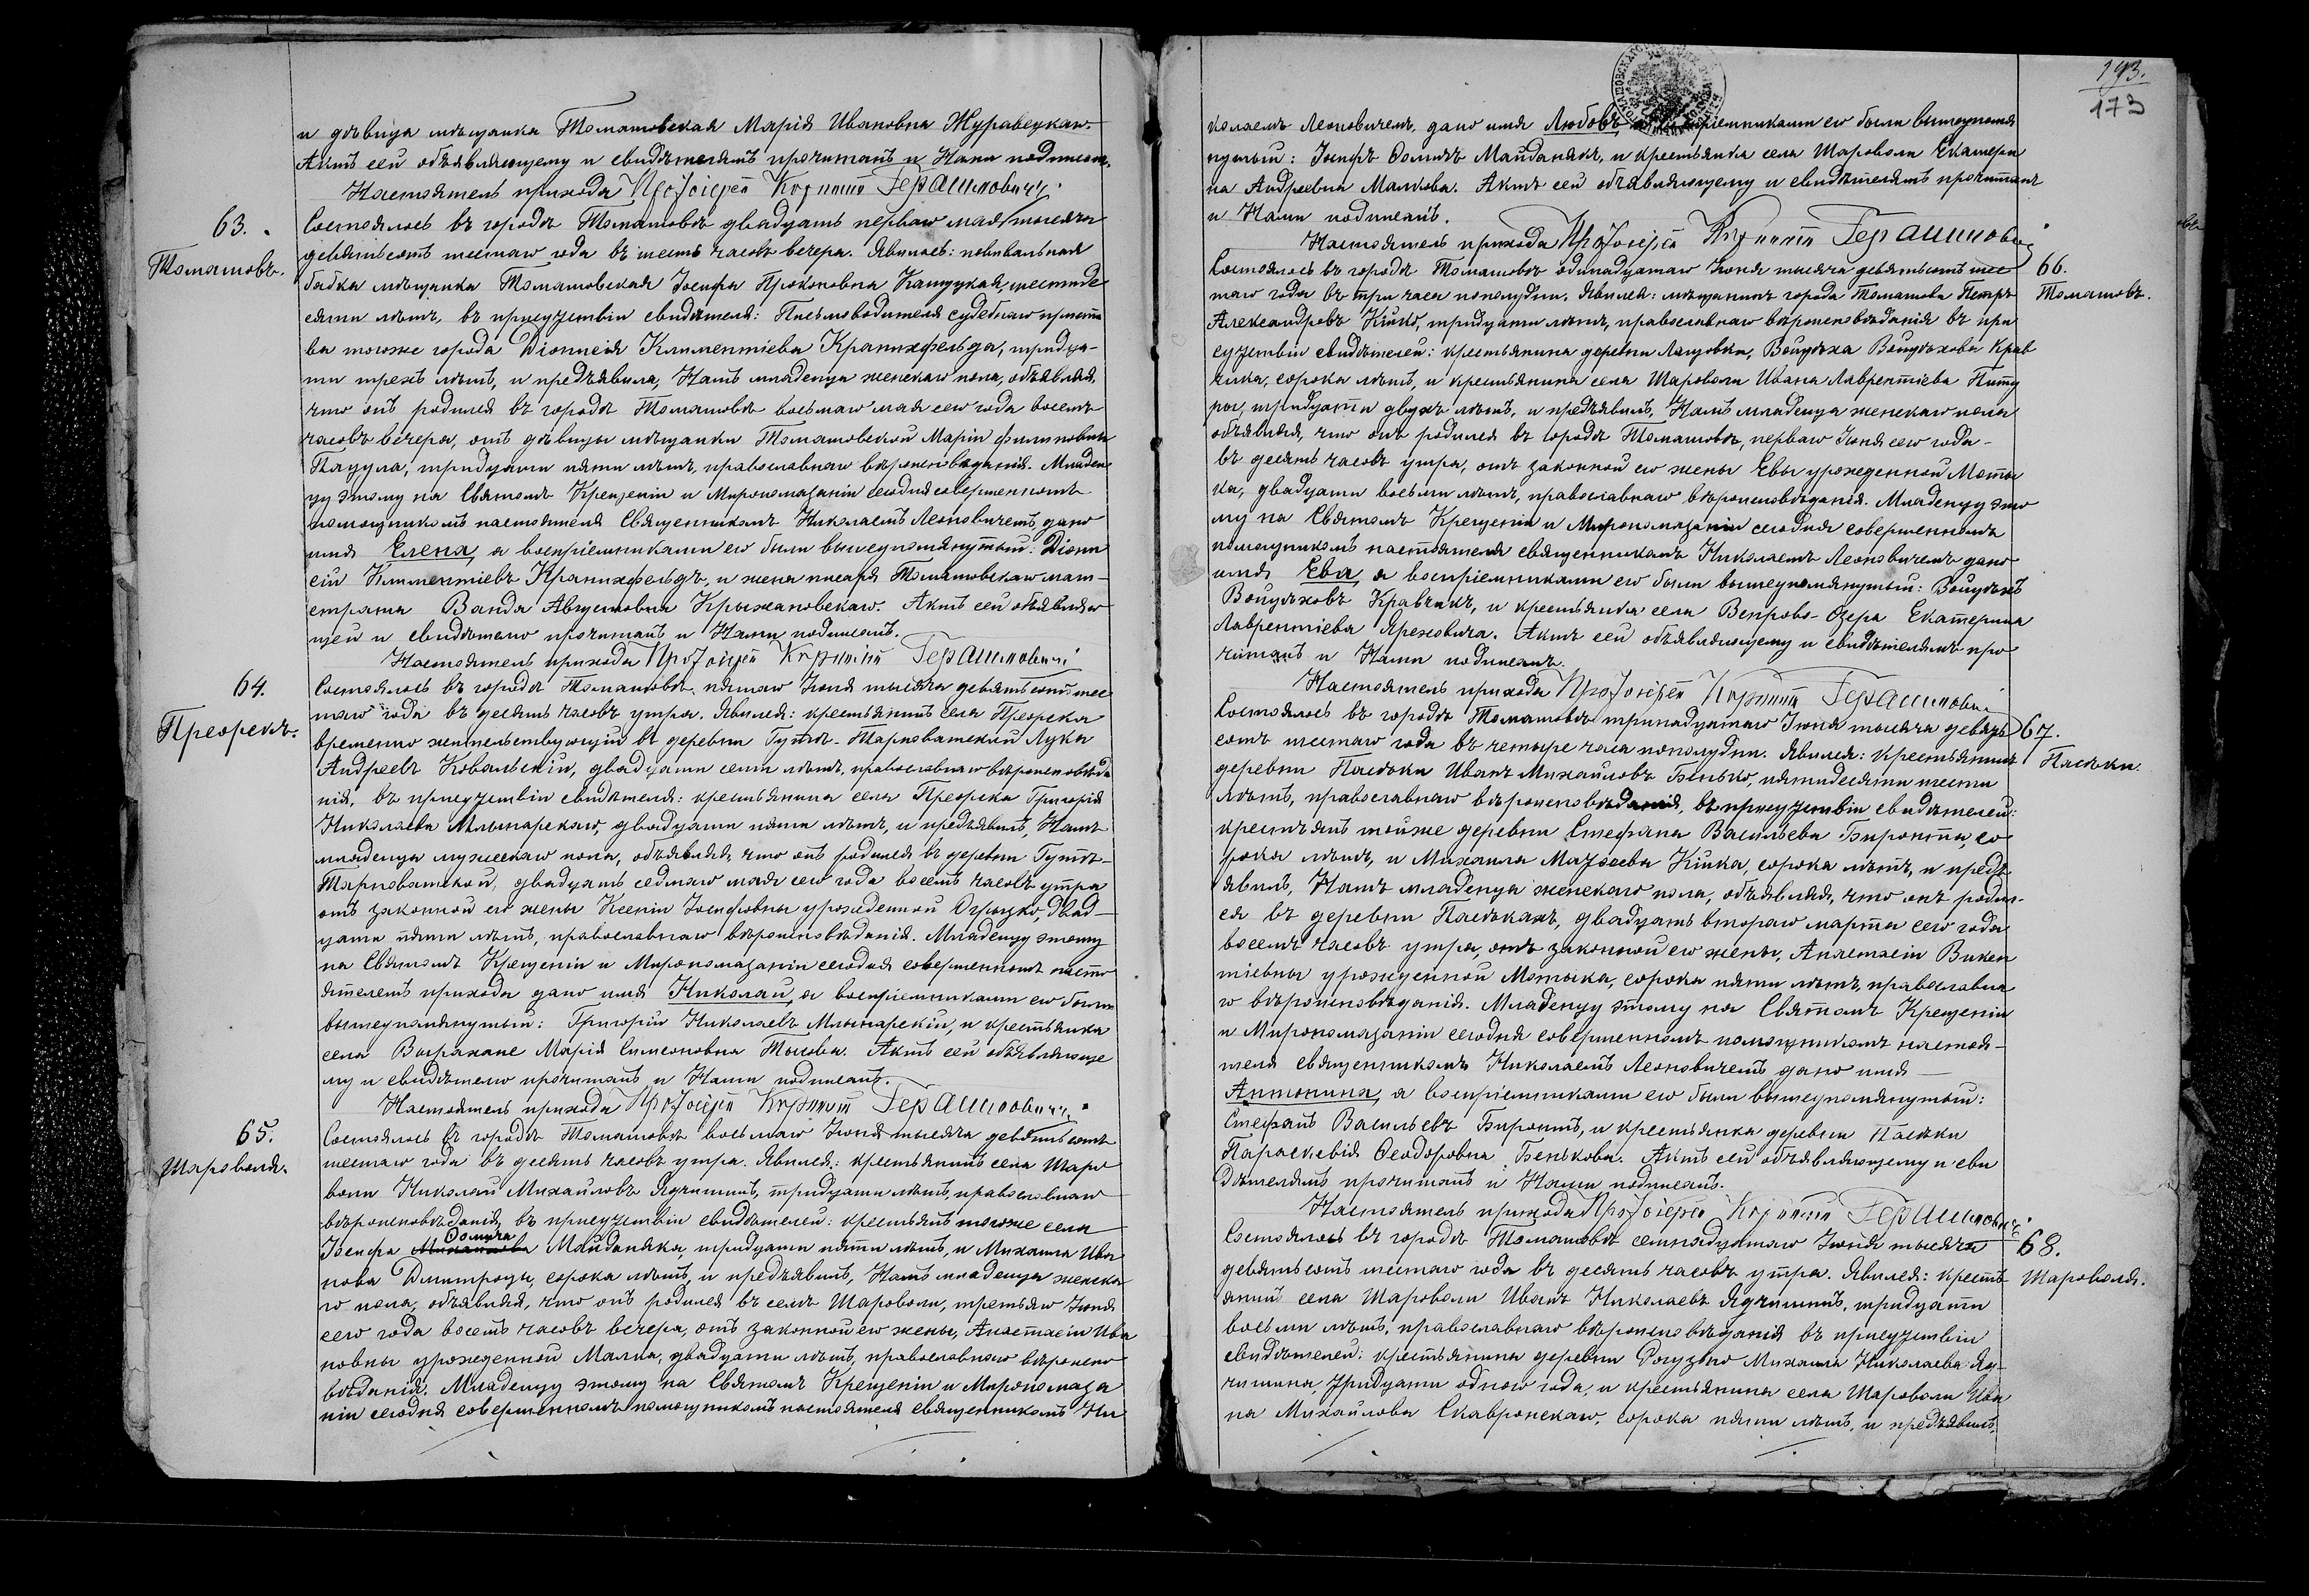 и дѣвица мѣщанка Томашовская Марія Ивановна Журавецкаю.
Актъ сей объявляющему и свидѣтелямъ прочитанъ и Нами подписанъ.
Настоятель прихода Протоіерей Корнилій Герашимовичъ
63.
Томашовъ.
Состоялось въ городѣ Томашовѣ двадцать перваго мая тысяча
девятьсотъ шестаго года въ шесть часовъ вечера. Явилась: повивальная
бабка мѣщанка Томашовская Іосифа Прокоповна Кащукая, шестиде
сяти лѣтъ, въ присутствіи свидѣтеля: Письмоводителя судебнаго пристa
ва тогоже города Діонисія Климентіева Кранихфельда, тридца-
ти трехъ лѣтъ, и предъявила, Намъ младенца женскаго пола, объявляя,
что онъ родился въ городѣ Томашовѣ восьмаго мая сего года восемь
часовъ вечера, отъ дѣвицы мѣщанки Томашовской Маріи Филиповны
Пацула, тридцати пяти лѣтъ, православнаго вѣроисповѣданія. Младен
цу этому на Святомъ Крещеніи и Миропомазаніи сегодня совершенномъ
помощникомъ настоятеля Священникомъ Николаемъ Леоновичемъ, дано
имя Елена, а воспріемниками его были вышеупомянутый: Діони
сій Климентіевъ Кранихфельдъ, и жена писаря Томашовскаго маги-
страта Ванда Августовна Крыжановскаю. Актъ сей объявляю
щей и свидѣтелю прочитанъ и Нами подписанъ.
Настоятель прихода Протоіерей Корнилій Герашимовичъ
64.
Преорскъ.
Состоялось въ городѣ Томашовѣ, пятаго Іюня тысяча девятьсотъ шес
таго года въ десять часовъ утра. Явился: крестьянинъ села Преорска
временно жительствующій въ деревни Гутѣ-Тарноватской Лука
Андреевъ Ковальскій, двадцати семи лѣтъ, православнаго вѣроисповѣда
нія, въ присутствіи свидѣтеля: крестьянина села Преорска Григорія
Николаева Млынарскаго, двадцати пяти лѣтъ, и предъявилъ, Намъ
младенца мужескаго пола, объявляя, что онъ родился въ деревни Гутѣ-
Тарноватской, двадцать седмаго мая сего года восемь часовъ утра
отъ законной его жены Ксеніи Іосифовны урожденной Огрызко, двад-
цати пяти лѣтъ, православнаго вѣроисповѣданія. Младенцу этому
на Святомъ Крещеніи и Миропомазаніи сегодня совершенномъ насто
ятелемъ прихода дано имя Николай, а воспріемниками его были
вышеупомянутый: Григорій Николаевъ Млынарскій, и крестьянка
села Вытрахане Марія Симеоновна Тысова. Актъ сей объявляюще
му и свидѣтелю прочитанъ и Нами подписанъ.
Настоятель прихода Протоіерей Корнилій Герашимовичъ
65.
Шароволя.
Состоялось въ городѣ Томашовѣ восьмаго Іюня тысяча девятьсотъ
шестаго года въ десять часовъ утра. Явился: крестьянинъ села Шаро
воли Николай Михайловъ Ядчишинъ, тридцати лѣтъ, православнаго
вѣроисповѣданія, въ присутствіи свидѣтелей: крестьянъ тогоже села
Ѳомича
Іосифа Майданяка, тридцати пяти лѣтъ, и Михаила Ива
нова Дмитроцы, сорока лѣтъ, и предъявилъ, Намъ младенца женска
го пола, объявляя, что онъ родился въ селѣ Шароволи, третьяго Іюня
сего года восемь часовъ вечера, отъ законной его жены, Анастасіи Ива
новны урожденной Малка, двадцати лѣтъ, православнаго вѣроиспо
вѣданія. Младенцу этому на Святомъ Крещеніи и Миропомаза
ніи сегодня совершенномъ помощникомъ настоятеля священникомъ Ни
193.
173
колаемъ Леоновичемъ, дано имя Любовь, воспріемниками его были вышеупомя
нутый: Іосифъ Ѳомичъ Майданякъ, и крестьянка села Шароволи Екатери
на Андреевна Малкова. Актъ сей объявляющему и свидѣтелямъ прочитанъ
и Нами подписанъ.
Настоятель прихода Протоіерей Корнилій Герашимовичъ
66.
Томашовъ.
Состоялось въ городѣ Томашовѣ одинадцатаго Іюня тысяча девятьсотъ шес
таго года въ три часа пополудни. Явился: мѣщанинъ города Томашова Петръ
Александровъ Кійко, тридцати лѣтъ, православнаго вѣроисповѣданія въ при
сутствіи свидѣтелей: крестьянина деревни Лащовки, Войцѣха Войцѣхова Крав
чика, сорока лѣтъ, и крестьянина села Шароволи Ивана Лаврентіева Питу
ры, тридцати двухъ лѣтъ, и предъявилъ, Намъ младенца женскаго пола
объявляя, что онъ родился въ городѣ Томашовѣ, перваго Іюня сего года-
въ десять часовъ утра, отъ законной его жены Евы урожденной Моты
ка, двадцати восьми лѣтъ, православнаго вѣроисповѣданія. Младенцу это
му на Святомъ Крещеніи и Миропомазаніи сегодня совершенномъ
помощникомъ настоятеля священникомъ Николаемъ Леоновичемъ дано
имя Ева, а воспріемниками его были вышеупомянутый: Войцѣхъ
Войцѣховъ Кравчикъ, и крестьянка села Вепрово-Озера Екатерина
Лаврентіева Яремовича. Актъ сей объявляющему и свидѣтелямъ про
читанъ и Нами подписанъ.
Настоятель прихода Протоіерей Корнилій Герашимовичъ
67.
Пасѣки.
Состоялось въ городѣ Томашовѣ тринадцатаго Іюня тысяча девять
сотъ шестаго года въ четыре часа пополудни. Явился: крестьянинъ
деревни Пасѣки Иванъ Михайловъ Бенько, пятидесяти шести
лѣтъ, православнаго вѣроисповѣданія, въ присутствіи свидѣтелей:
крестьянъ тойже деревни Стефана Васильева Биронта, со
рока лѣтъ, и Михаила Матѳеева Кійка, сорока лѣтъ, и предъ
явилъ, Намъ младенца женскаго пола, объявляя, что онъ родил-
ся въ деревни Пасѣкахъ, двадцать втораго марта сего года
восемь часовъ утра, отъ законной его жены, Анастасіи Викен
тіевны урожденной Мотыка, сорока пяти лѣтъ, православна
го вѣроисповѣданія. Младенцу этому на Святомъ Крещеніи
и Миропомазаніи сегодня совершенномъ помощникомъ настоя-
теля священникомъ Николаемъ Леоновичемъ дано имя
Антонина, а воспріемниками его были вышеупомянутый:
Стефанъ Васильевъ Биронтъ, и крестьянка деревни Пасѣки
Параскевія Ѳеодоровна Бенькова. Актъ сей объявляющему и сви
дѣтелямъ прочитанъ и Нами подписанъ.
Настоятель прихода Протоіерей Корнилій Герашимовичъ
68.
Шароволя.
Состоялось въ городѣ Томашовѣ семнадцатаго Іюня тысяча
девятьсотъ шестаго года въ десять часовъ утра. Явился: кресть
янинъ села Шароволи Иванъ Николаевъ Ядчишинъ, тридцати
восьми лѣтъ, православнаго вѣроисповѣданія въ присутствіи
свидѣтелей: крестьянина деревни Рогузно Михаила Николаева Яд-
чишина, тридцати одного года, и крестьянина села Шароволи Ива
на Михайлова Скавронскаго, сорока пяти лѣтъ, и предъявилъ,